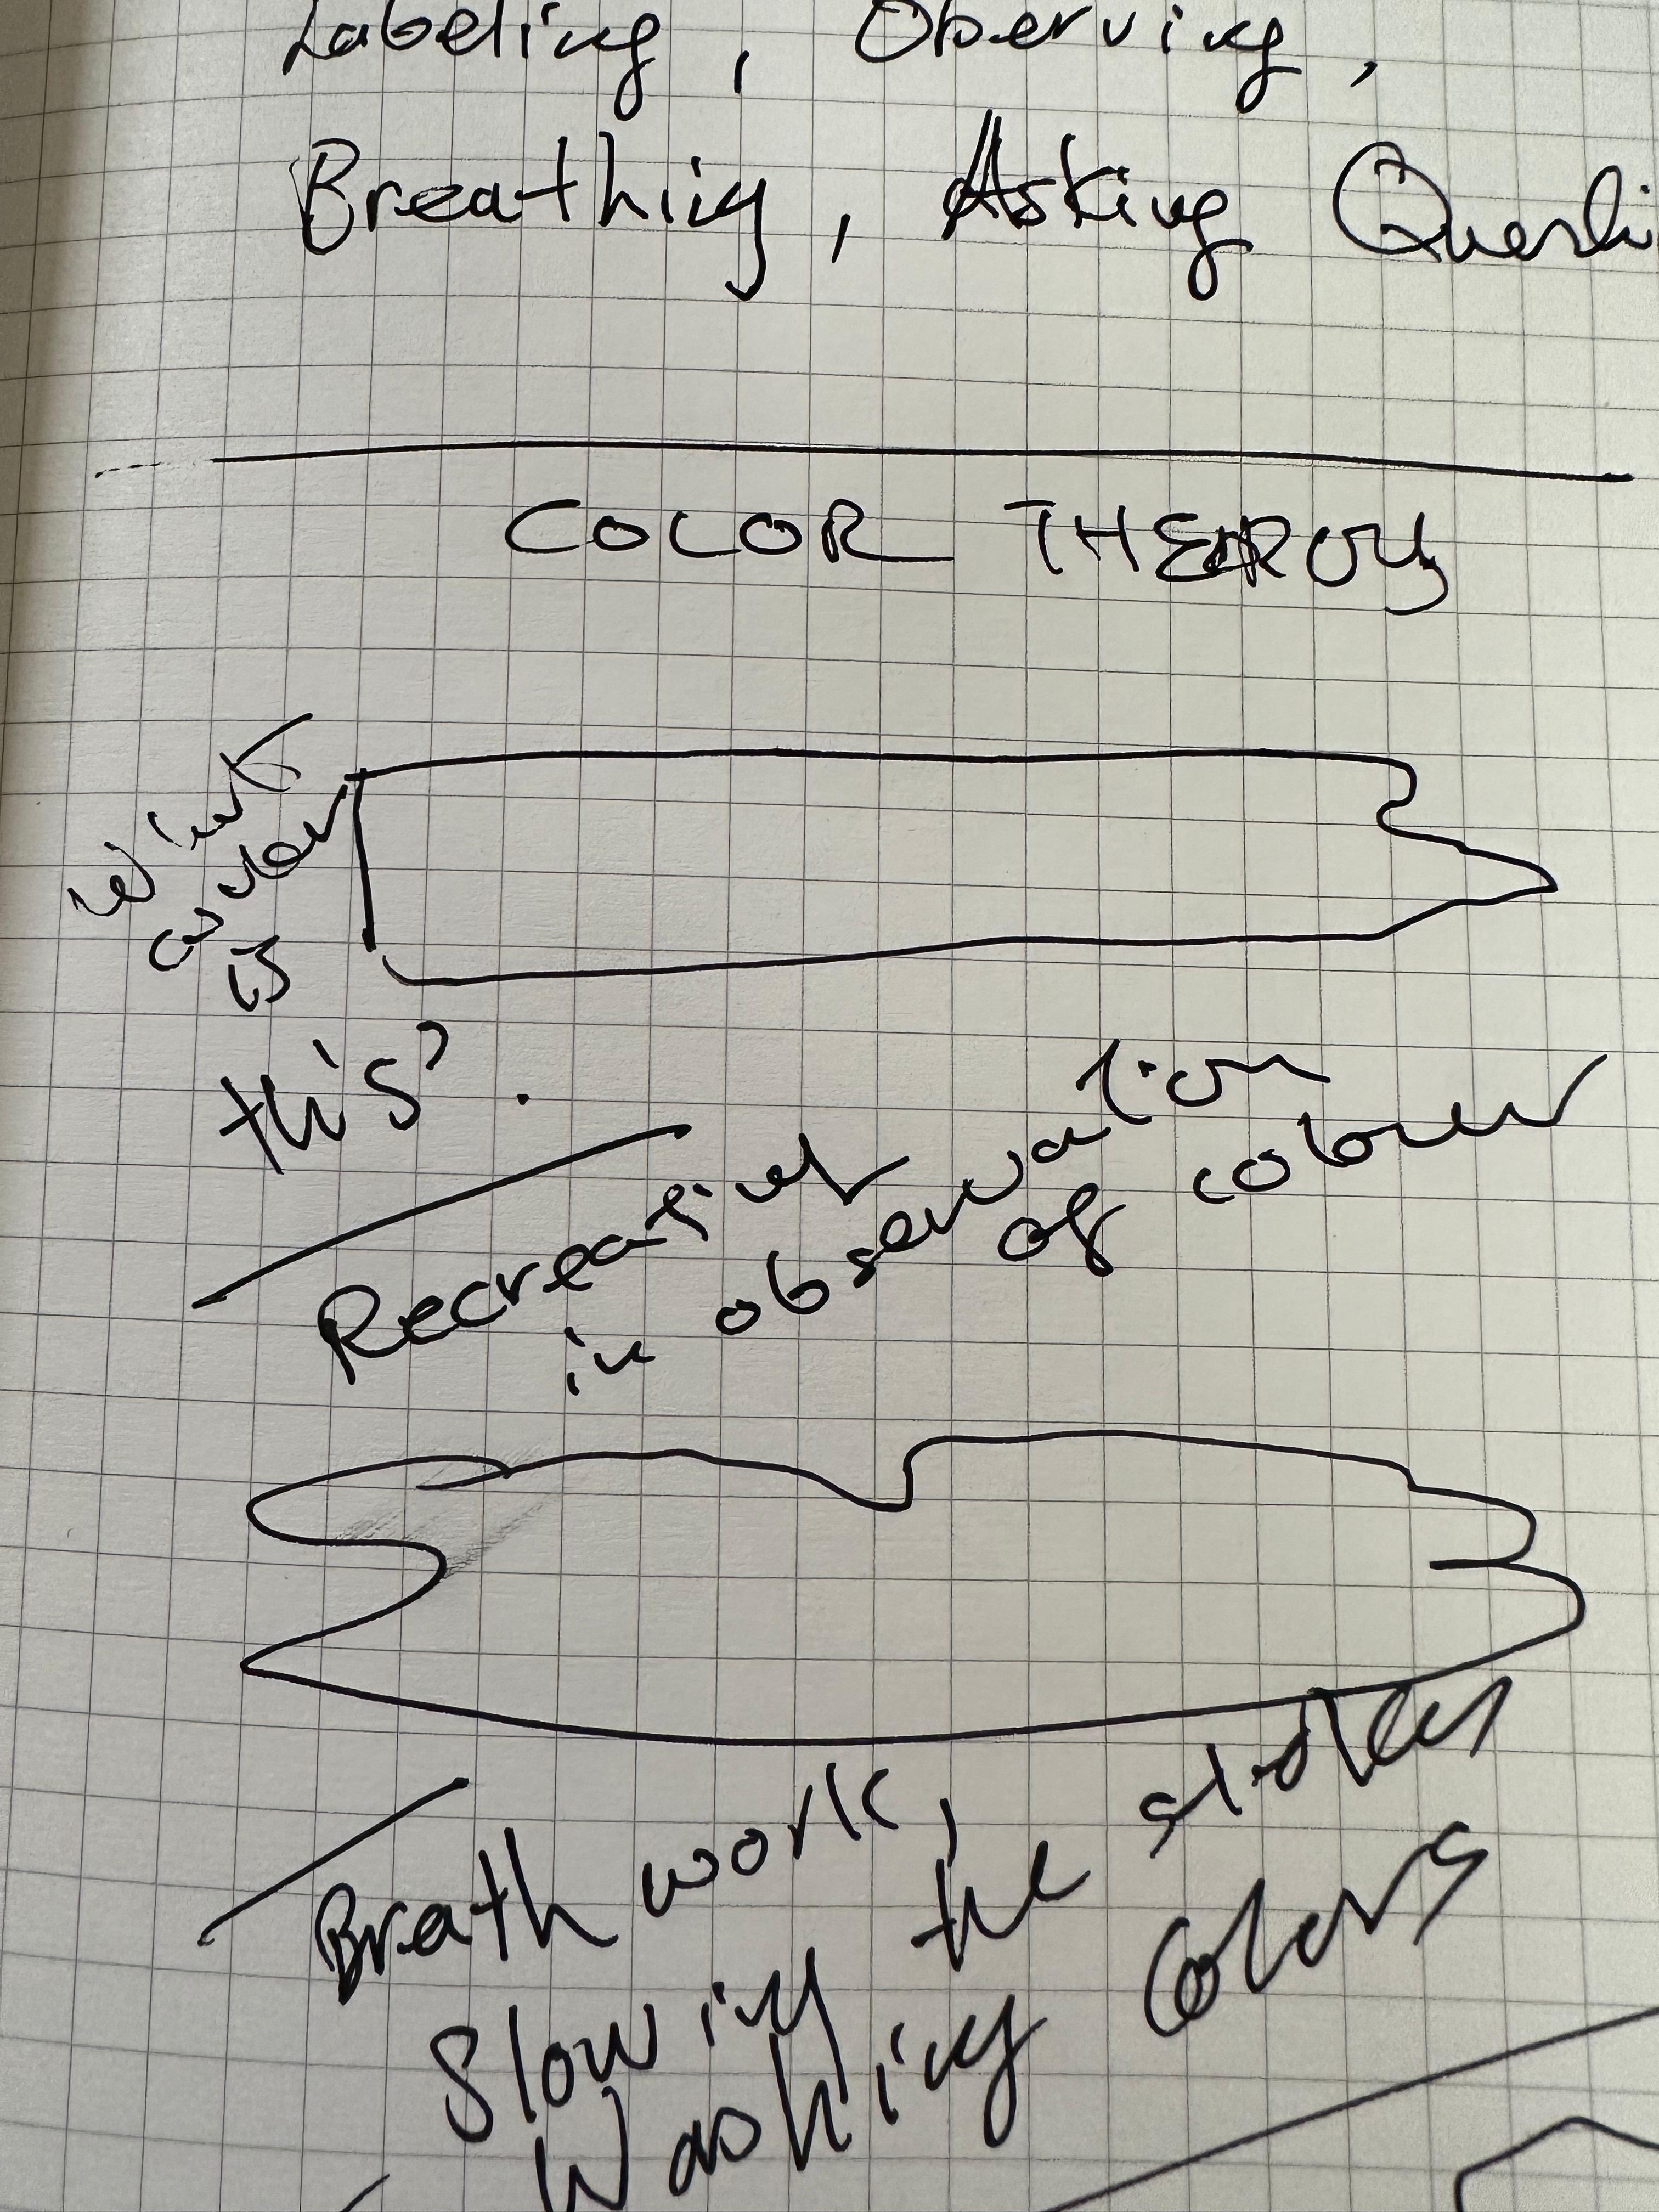 Labeling, Oberving,
Breathing, Asking Questi
COLOR THEROY
What
color
is
this?
Recreational
in observation
of colour
Breath work,
Slowing the
Washing colors